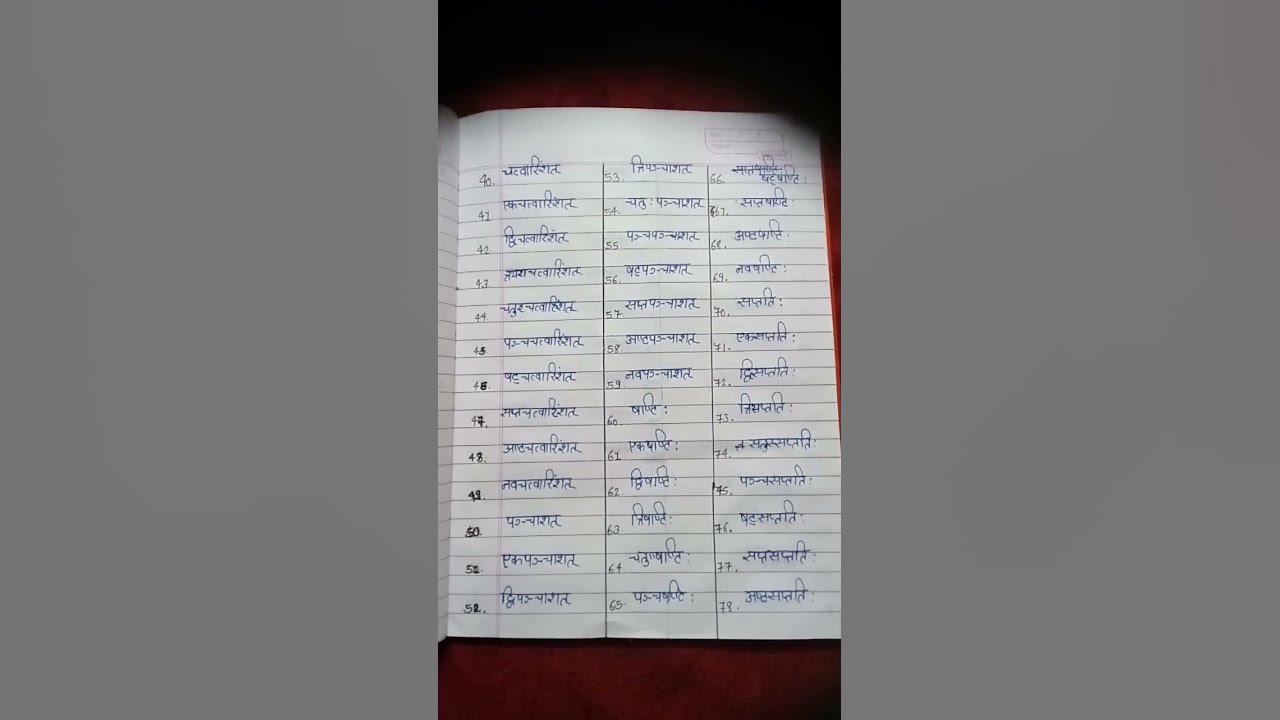 40. चत्वारिंशत्
41 एकचत्वारिंशत्
42 द्विचत्वारिंशत्
43. त्रयश्चत्वारिंशत्
44. चतुश्चत्वारिंशत्
45. पञ्चचत्वारिंशत्
46. षट्चत्वारिंशत्
47. सप्तचत्वारिंशत्
48. अष्टचत्वारिंशत्
49. नवचत्वारिंशत्
50. पञ्चाशत्
51. एकपञ्चाशत्
52. द्विपञ्चाशत्
53. त्रिपञ्चाशत्
54. चतु: पञ्चाशत्
55. पञ्चपञ्चाशत्
56. षट्पञ्चाशत्
57. सप्तपञ्चाशत्
58. अष्टपञ्चाशत्
59. नवपञ्चाशत्
60. षष्टि:
61 एकषष्टि:
62. द्विषष्टि:
63 त्रिषष्टि:
64 चतुष्षष्टि:
65. पञ्चषष्टि:
66. षट्षष्टि:
67. सप्तषष्टि:
68. अष्टषष्टि:
69. नवषष्टि:
70. सप्तति:
71. एकसप्तति:
72. द्विसप्तति:
73. त्रिसप्तति:
74. चतुस्सप्तति:
75. पञ्चसप्तति:
76. षट्सप्तति:
77. सप्तसप्तति:
78. अष्टसप्तति: